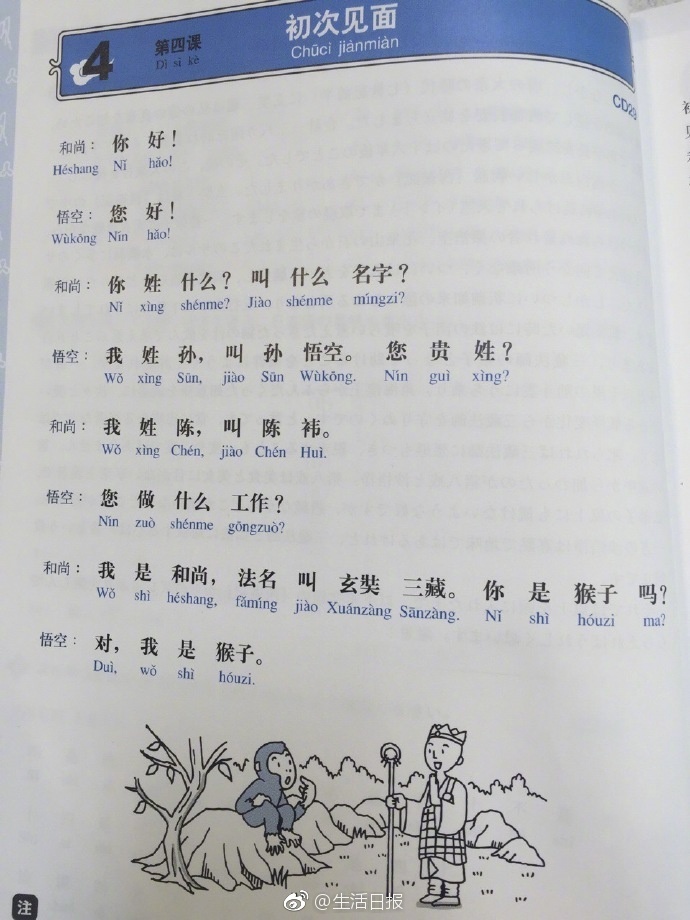 4 第四课 初次见面
Dì sì kè Chūcì jiànmiàn
CD29
和尚： 你 好！
Héshang Nǐ hǎo!
悟空： 您 好！
Wùkōng Nín hǎo!
和尚： 你 姓 什么？ 叫 什么 名字？
Nǐ xìng shénme? Jiào shénme míngzi?
悟空： 我 姓 孙， 叫 孙 悟空。 您 贵 姓？
Wǒ xìng Sūn, jiào Sūn Wùkōng. Nín guì xìng?
和尚： 我 姓 陈， 叫 陈 袆。
Wǒ xìng Chén, jiào Chén Huī.
悟空： 您 做 什么 工作？
Nín zuò shénme gōngzuò?
和尚： 我 是 和尚， 法名 叫 玄奘 三藏。 你 是 猴子 吗？
Wǒ shì héshang, fǎmíng jiào Xuánzàng Sānzàng. Nǐ shì hóuzi ma?
悟空： 对， 我 是 猴子。
Duì, wǒ shì hóuzi.
注
@生活日报